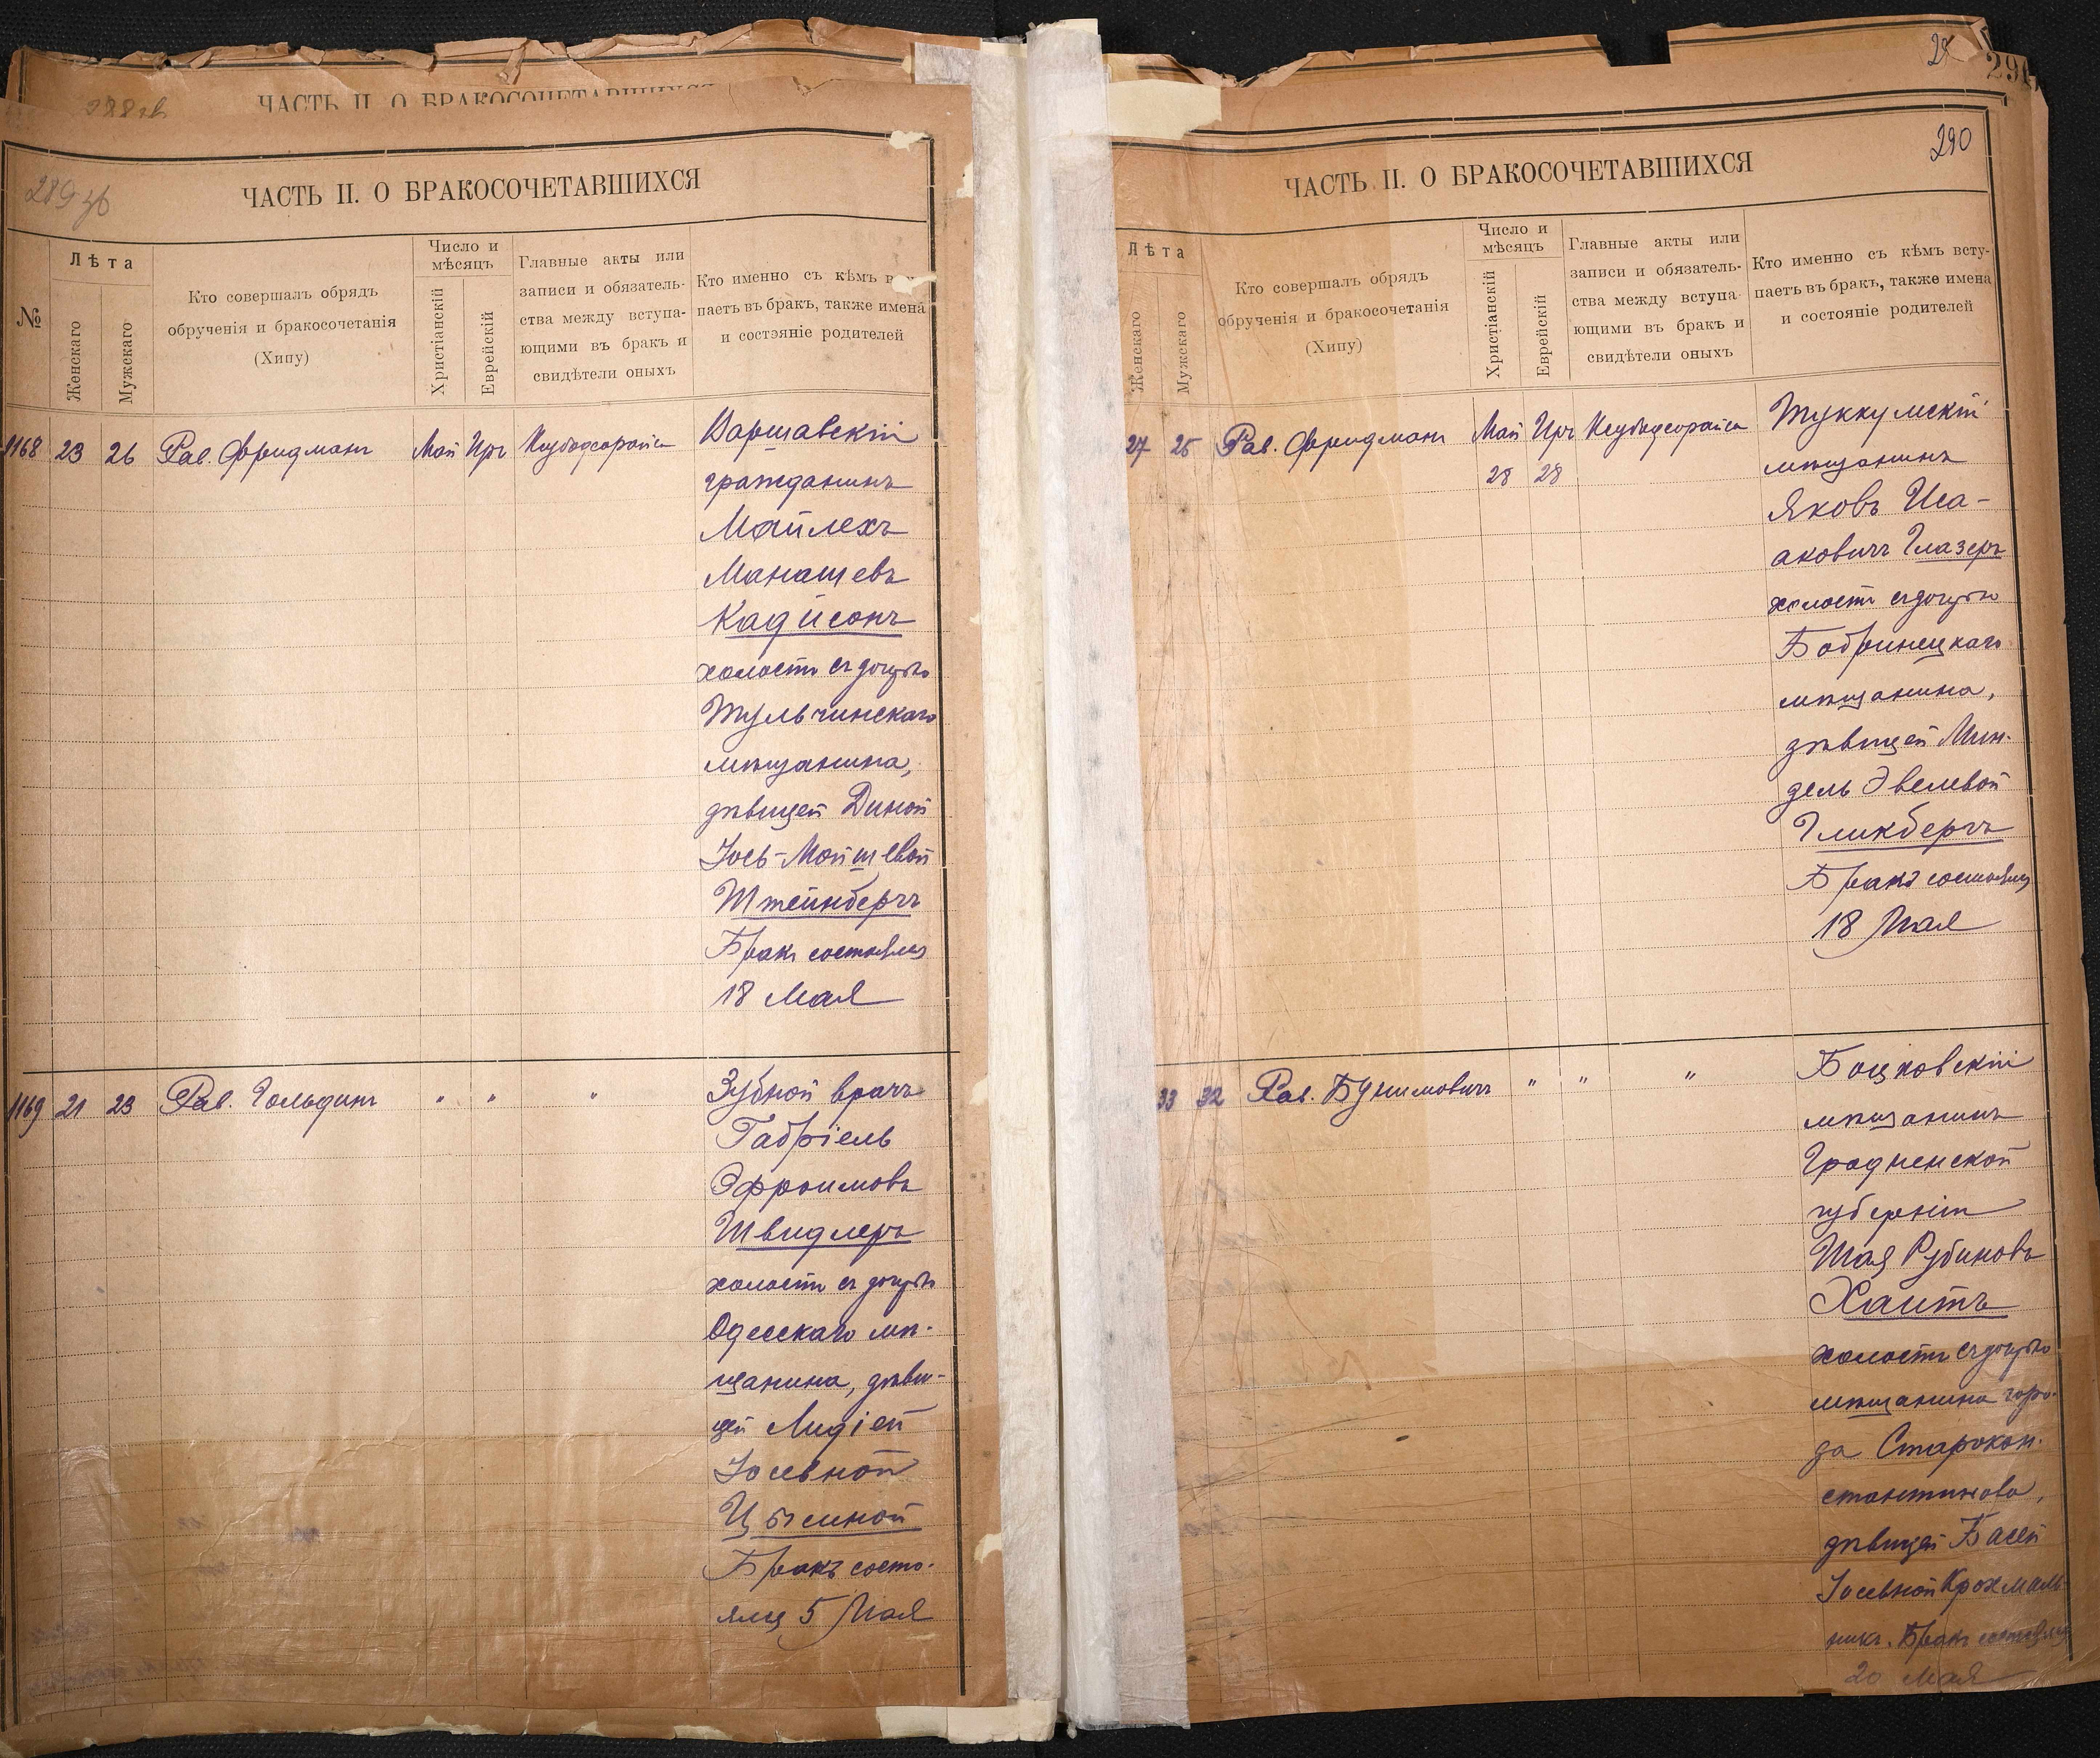 288 об
ЧАСТЬ II. О БРАКОСОЧЕТАВШИХСЯ
289 об
ЧАСТЬ II. О БРАКОСОЧЕТАВШИХСЯ
№
Лѣта
Женскаго
Мужскаго
Кто совершалъ обрядъ
обрученія и бракосочетанія
(Хипу)
Число и
мѣсяцъ
Христіанскій
Еврейскій
Главные акты или
записи и обязатель-
ства между вступа-
ющими въ бракъ и
свидѣтели оныхъ
Кто именно съ кѣмъ
паетъ въ бракъ, также имена
и состэяніе родителей
1168 23 26 Рав. Фридманъ Май Иръ Ксубодсорайса
Варшавскій
гражданинъ
Майлехъ
Манашевъ
Кадисонъ
холостъ съ дочерью
Тульчинскаго
мѣщанина,
дѣвицей Диной
Іось-Мойшевой
Штейнбергъ
Бракъ состоялся
18 Мая
1169 21 23 Рав. Гольдинъ " " "
Зубной врачъ
Габріель
Эфроимовъ
Швидлеръ
холостъ съ дочерью
Одесскаго мѣ-
щанина, дѣви-
цей Лидіей
Іосевной
Цысиной
Бракъ состо-
ялся 5 Мая
291
290
ЧАСТЬ II. О БРАКОСОЧЕТАВШИХСЯ
Лѣта
Женскаго
Мужскаго
Кто совершалъ обрядъ
обрученія и бракосочетанія
(Хипу)
Число и
мѣсяцъ
Христіанскій
Еврейскій
Главные акты или
записи и обязатель-
ства между вступа-
ющими въ бракъ и
свидѣтели оныхъ
Кто именно съ кѣмъ всту-
паетъ въ бракъ, также имена
и состояніе родителей
27 25 Рав. Фридманъ Май Иръ Ксубодсорайса
28 28
Туккумскій
мѣщанинъ
Яковъ Иса-
аковичъ Глазеръ
холостъ съ дочерью
Бобринецкаго
мѣщанина,
дѣвицей Мин-
дель Эвелевой
Гликбергъ
Бракъ состоялся
18 Мая
33 32 Рав. Бунимовичъ " " "
Боцковскій
мѣщанинъ
Гродненской
губерніи
Шая Рубиновъ
Хаитъ
холостъ съ дочерью
мѣщанина горо-
да Старокон-
стантинова,
дѣвицей Басей
Іосевной Крохмаль-
никъ. Бракъ состоялся
20 Мая